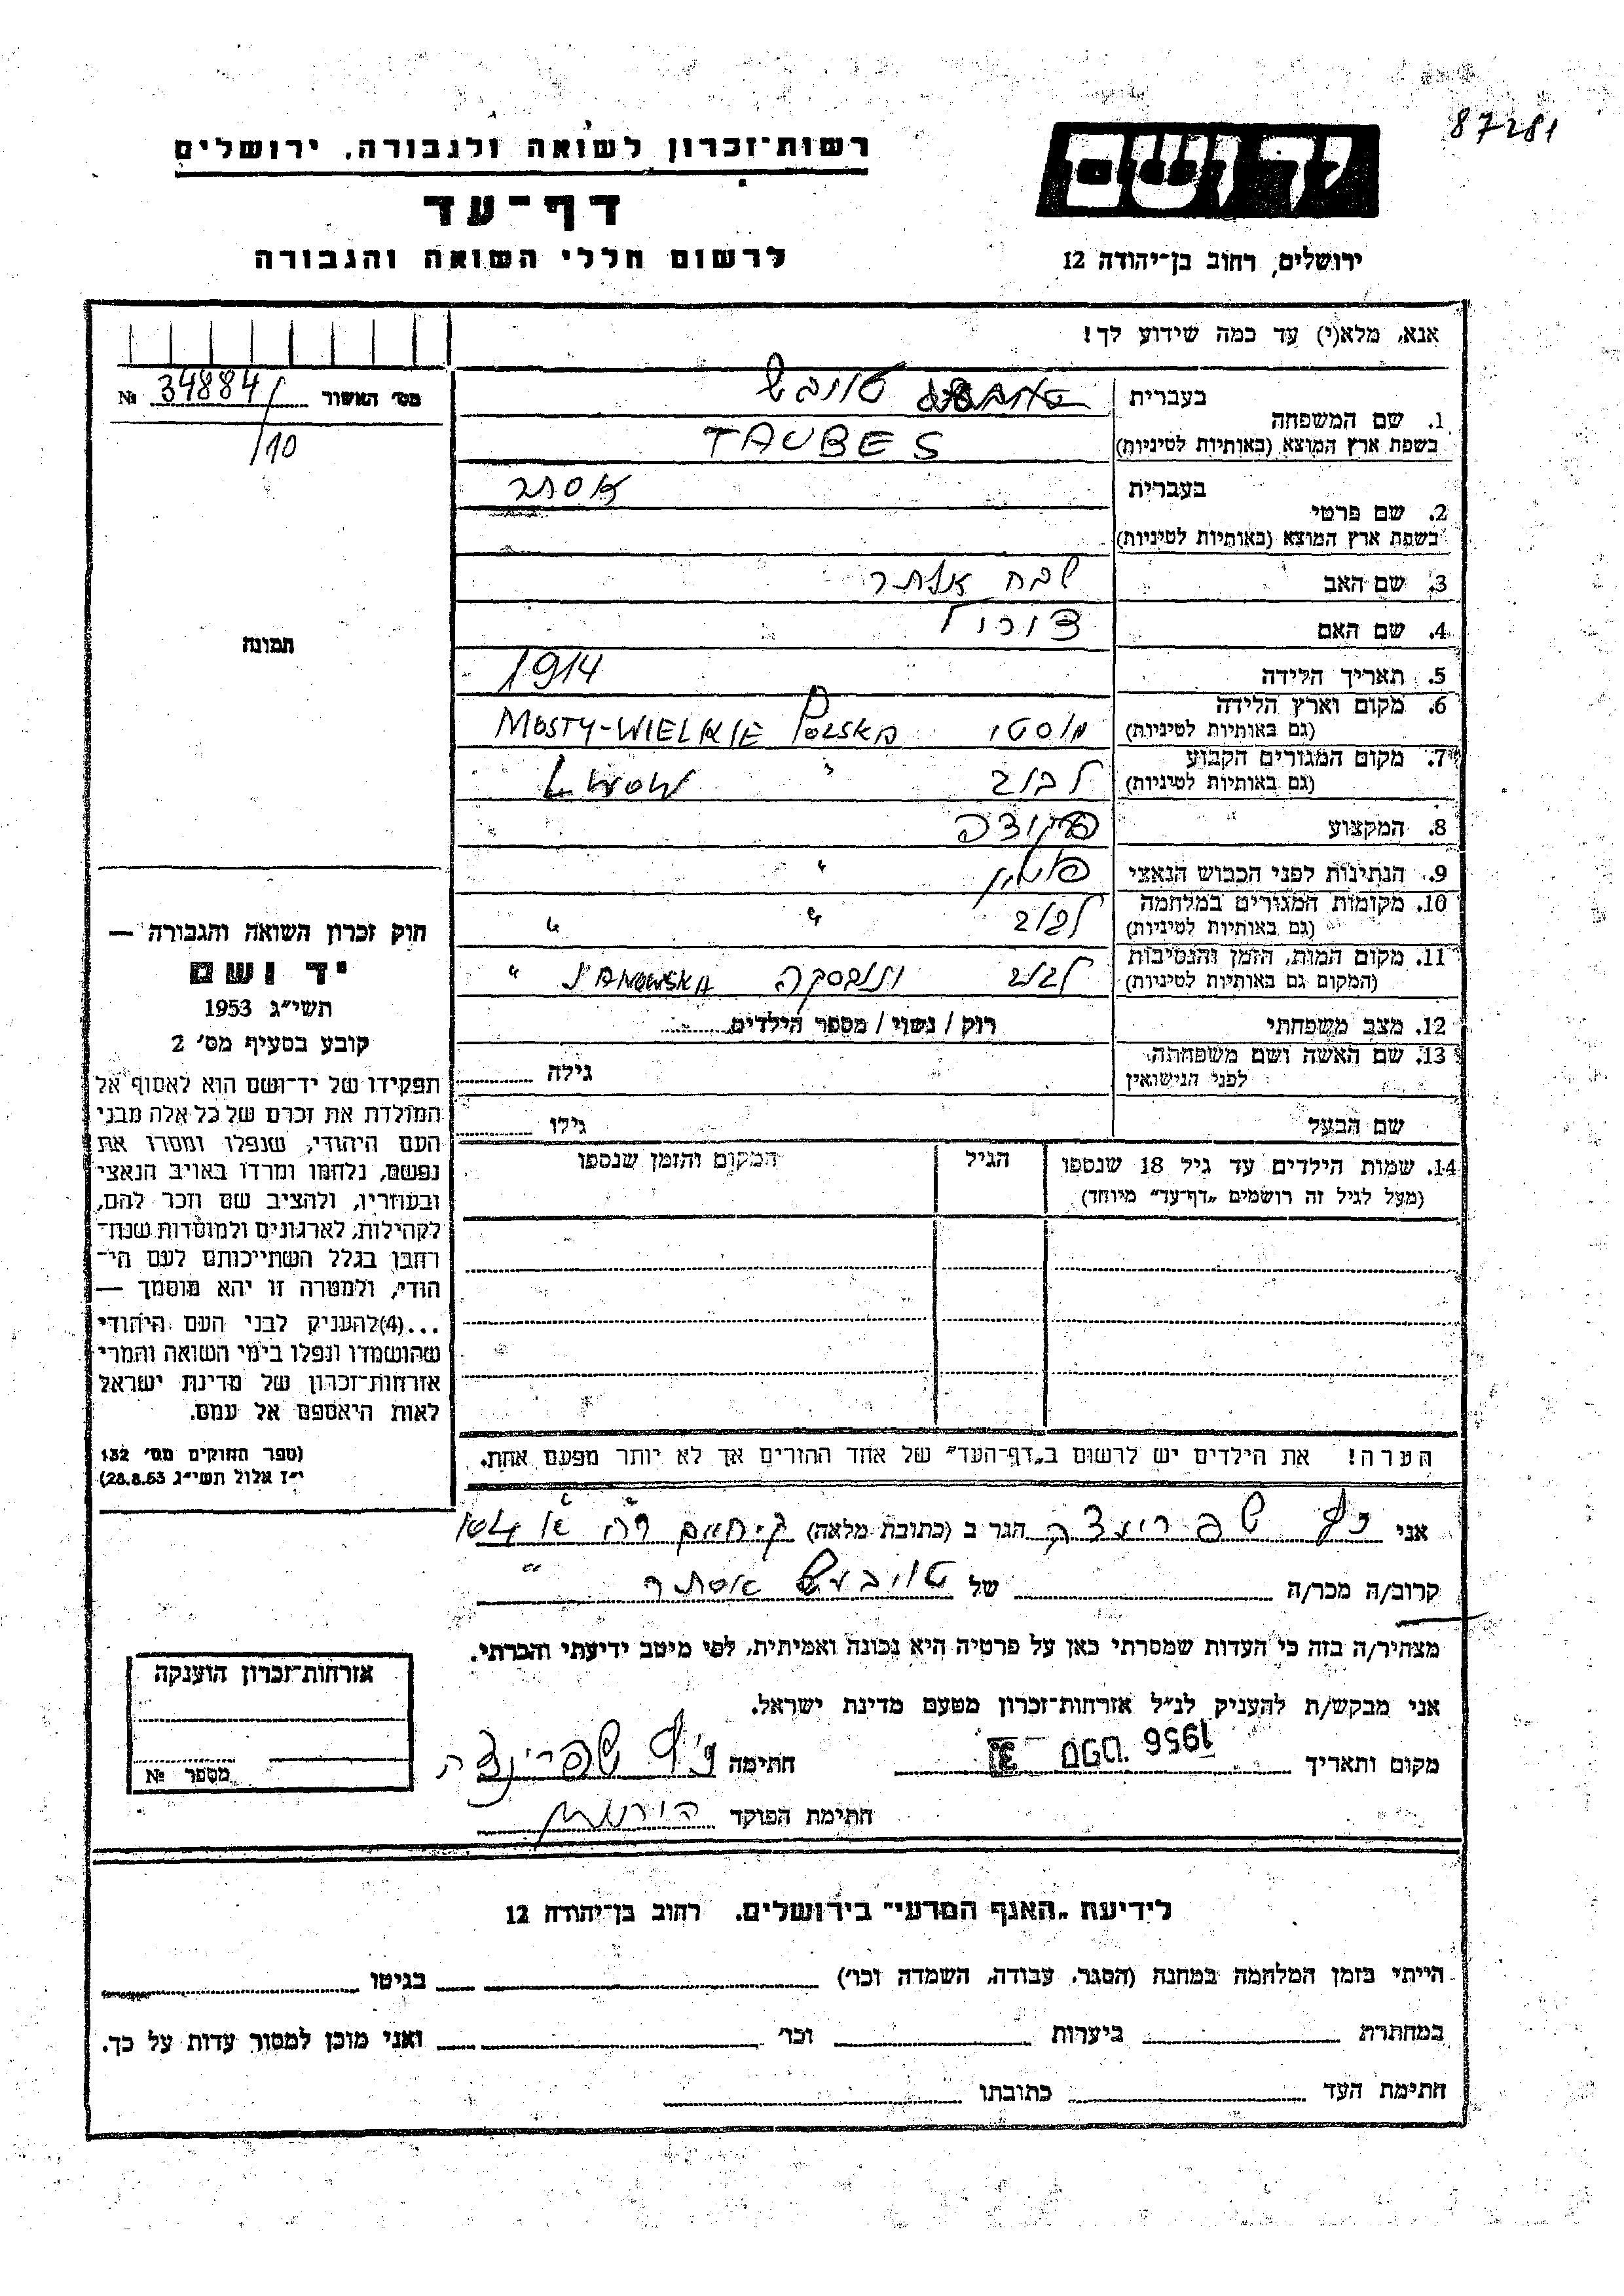 87281
רשות־זכרון לשואה ולגבורה, ירושלים
דף־עד
לרשום חללי השואה והגבורה
יד ושם
ירושלים, רחוב בן־יהודה 12
אנא, מלא(י) עד כמה שידוע לך!
מס׳ האשור 34884/ №
/10
תמונה
1. שם המשפחה בעברית טובש
בשפת ארץ המוצא (באותיות לטיניות) TAUBES
2. שם פרטי בעברית אסתר
בשפת ארץ המוצא (באותיות לטיניות)
3. שם האב שבח
4. שם האם
5. תאריך הלידה 1914
6. מקום וארץ הלידה
(גם באותיות לטיניות) מוסטי MOSTY-WIELKIE
7. מקום המגורים הקבוע
(גם באותיות לטיניות) לבוב " Lwow
8. המקצוע
9. הנתינות לפני הכבוש הנאצי פולין "
10. מקומות המגורים במלחמה
(גם באותיות לטיניות) לבוב " "
11. מקום המות, הזמן והנסיבות
(המקום גם באותיות לטיניות) לבוב ינובסקה JANOWSKA "
12. מצב משפחתי רוק / נשוי / מספר הילדים
13. שם האשה ושם משפחתה
לפני הנישואין גילה
שם הבעל גילו
14. שמות הילדים עד גיל 18 שנספו הגיל המקום והזמן שנספו
(מעל לגיל זה רושמים „דף־עד״ מיוחד)
הערה! את הילדים יש לרשום ב„דף־העד״ של אחד ההורים אך לא יותר מפעם אחת.
חוק זכרון השואה והגבורה —
יד ושם
תשי״ג 1953
קובע בסעיף מס׳ 2
תפקידו של יד־ושם הוא לאסוף אל
המולדת את זכרם של כל אלה מבני
העם היהודי, שנפלו ומסרו את
נפשם, נלחמו ומרדו באויב הנאצי
ובעוזריו, ולהציב שם וזכר להם,
לקהילות, לארגונים ולמוסדות שנח־
רבו בגלל השתייכותם לעם הי־
הודי, ולמטרה זו יהא מוסמך —
...(4) להעניק לבני העם היהודי
שהושמדו ונפלו בימי השואה והמרי
אזרחות־זכרון של מדינת ישראל
לאות היאספם אל עמם.
(ספר החוקים מס׳ 132
י״ז אלול תשי״ג 28.8.53)
אני שפרינצה הגר ב (כתובת מלאה)
קרוב/ה מכר/ה של טויבעש אסתר
מצהיר/ה בזה כי העדות שמסרתי כאן על פרטיה היא נכונה ואמיתית, לפי מיטב ידיעתי והכרתי.
אני מבקש/ת להעניק לנ״ל אזרחות־זכרון מטעם מדינת ישראל.
מקום ותאריך 1956 חתימה שפרינצה
חתימת הפוקד
אזרחות־זכרון הוענקה
מספר №
לידיעת „האגף המדעי״ בירושלים, רחוב בן־יהודה 12
הייתי בזמן המלחמה במחנה (הסגר, עבודה, השמדה וכו׳) בגיטו
במחתרת ביערות וכו׳ ואני מוכן למסור עדות על כך.
חתימת העד כתובתו